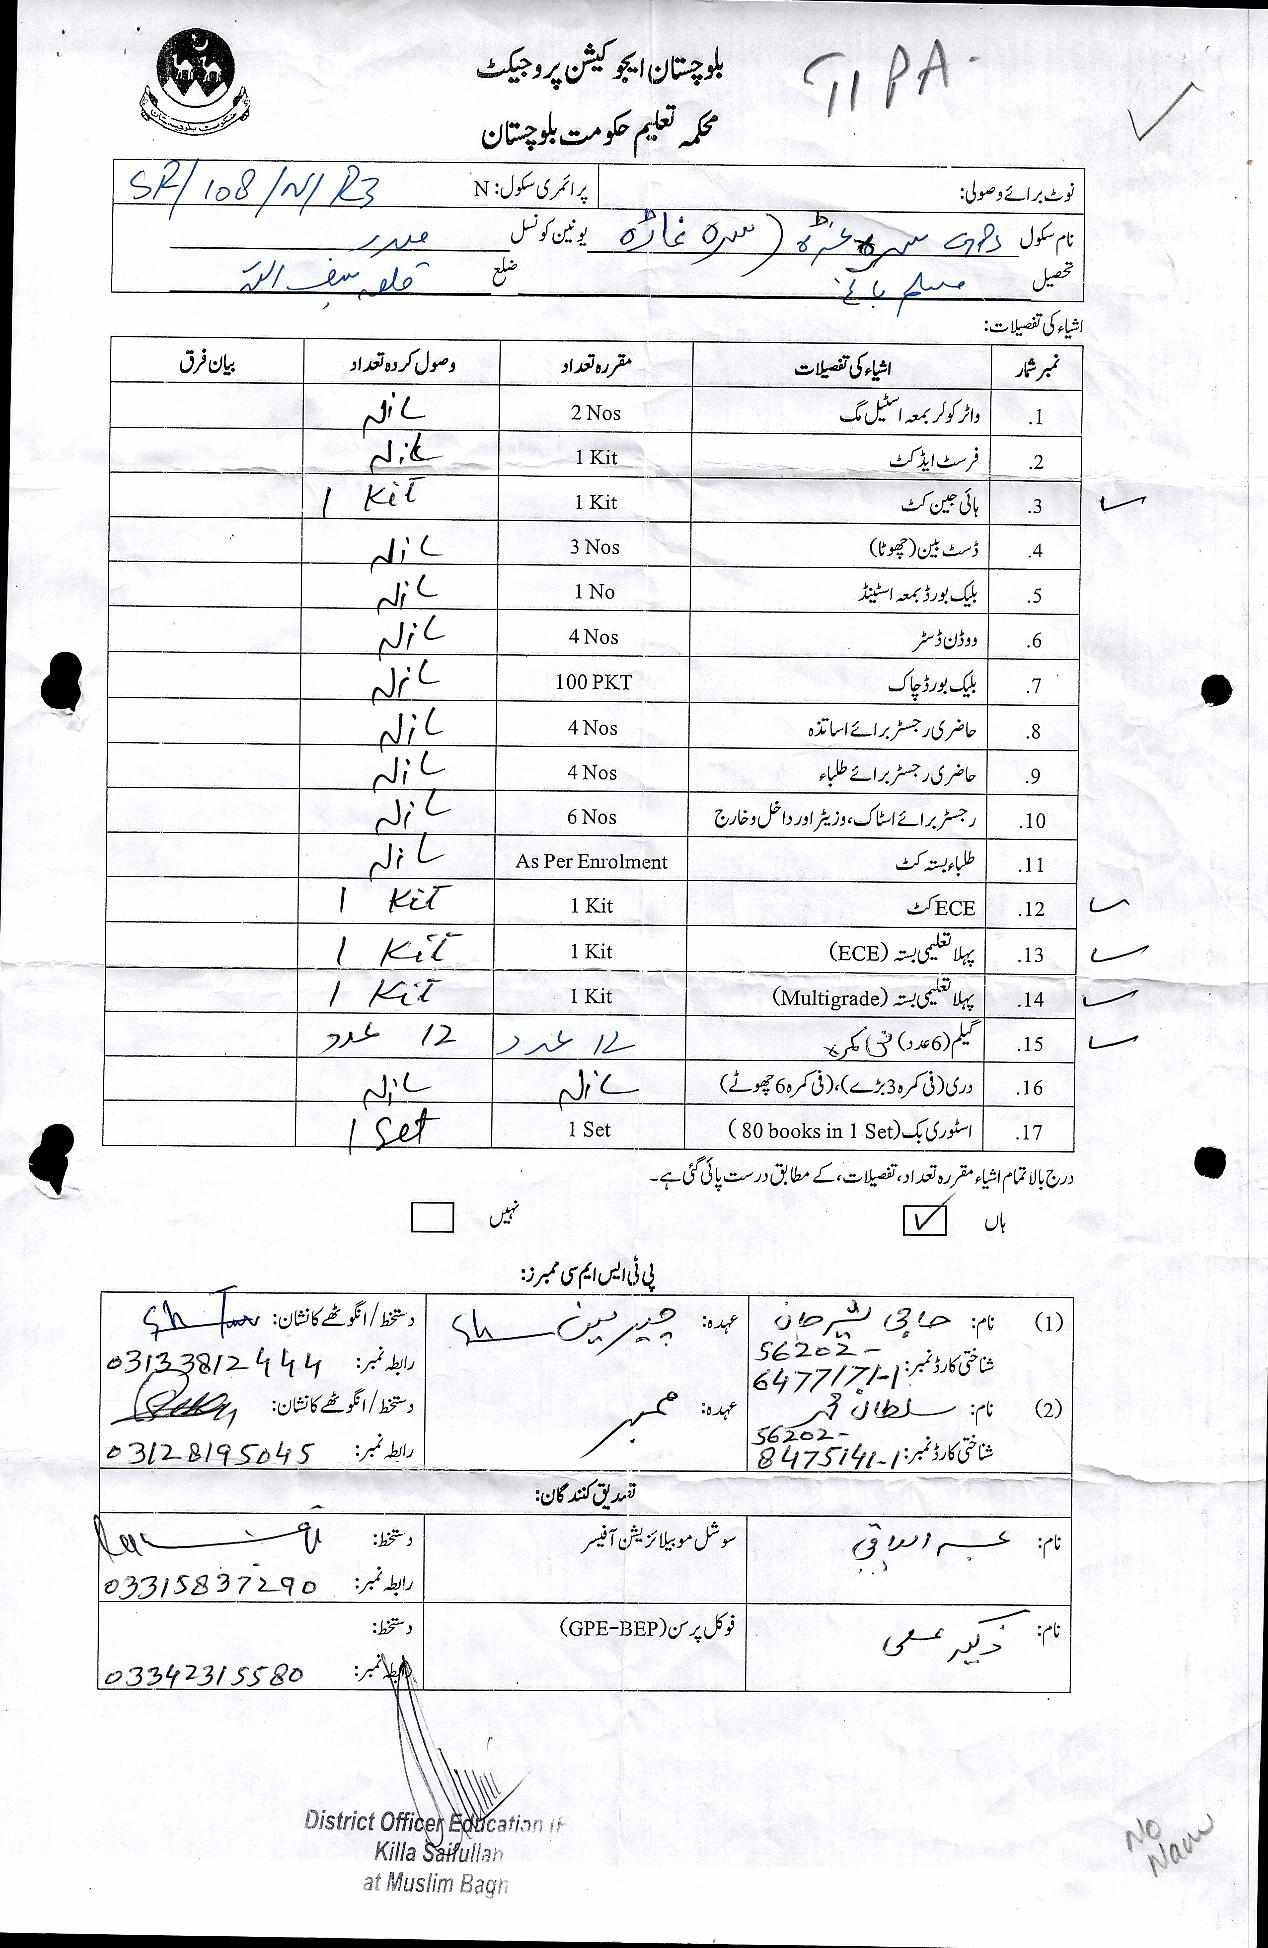 بلوچستان ایجوکیشن پروجیکٹ
TIPA
محکمہ تعلیم حکومت بلوچستان
نوٹ برائے وصولی: پرائمری سکول: N SR/108/N/R3
نام سکول GPS سرہ غڑہ (سرہ غاڑہ یونین کونسل صدر
تحصیل مسلم باغ ضلع قلعہ سیف اللہ
اشیاء کی تفصیلات:
نمبر شمار اشیاء کی تفصیلات مقررہ تعداد وصول کردہ تعداد بیان فرق
.1 واٹر کولر بمعہ اسٹیل مگ 2 Nos Nil
.2 فرسٹ ایڈ کٹ 1 Kit Nil
.3 ہائی جین کٹ 1 Kit 1 Kit
.4 ڈسٹ بین (چھوٹا) 3 Nos Nil
.5 بلیک بورڈ بمعہ اسٹینڈ 1 No Nil
.6 ووڈن ڈسٹر 4 Nos Nil
.7 بلیک بورڈ چاک 100 PKT Nil
.8 حاضری رجسٹر برائے اساتذہ 4 Nos Nil
.9 حاضری رجسٹر برائے طلباء 4 Nos Nil
.10 رجسٹر برائے اسٹاک، وزیٹر اور داخل و خارج 6 Nos Nil
.11 طلباء بستہ کٹ As Per Enrolment Nil
.12 ECE کٹ 1 Kit 1 Kit
.13 پہلا تعلیمی بستہ (ECE) 1 Kit 1 Kit
.14 پہلا تعلیمی بستہ (Multigrade) 1 Kit 1 Kit
.15 گیلم (6 عدد) فی کمرہ 12 عدد 12 عدد
.16 دری (فی کمرہ 3 بڑے)، (فی کمرہ 6 چھوٹے) Nil Nil
.17 اسٹوری بک (80 books in 1 Set) 1 Set 1 Set
درج بالا تمام اشیاء مقررہ تعداد، تفصیلات، کے مطابق درست پائی گئی ہے۔
ہاں نہیں
پی ٹی ایس ایم سی ممبرز:
(1) نام: حاجی شیر جان عہدہ: چیرمین دستخط/انگوٹھے کا نشان:
شناختی کارڈ نمبر: 56202-6477171-1 رابطہ نمبر: 03133812444
(2) نام: سلطان محمد عہدہ: ممبر دستخط/انگوٹھے کا نشان:
شناختی کارڈ نمبر: 56202-8475141-1 رابطہ نمبر: 03128195045
تصدیق کنندگان:
نام: عبدالباقی سوشل موبیلائزیشن آفیسر دستخط:
رابطہ نمبر: 03315837290
نام: فوکل پرسن (GPE-BEP) دستخط:
رابطہ نمبر: 03342315580
District Officer Education
Killa Saifullah
at Muslim Bagh
No
Name